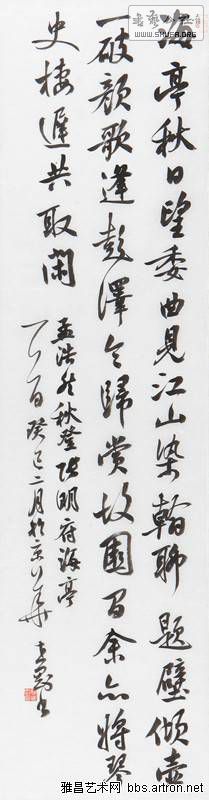 海亭秋日望委曲見江山染翰聊題壁傾壺
一破顏歌逢彭澤令歸賞故園間余亦將琴
史棲遲共取閑
孟浩然秋登張明府海亭
癸巳二月於京華
WWW.SHUFA.ORG
雅昌艺术网 bbs.artron.net